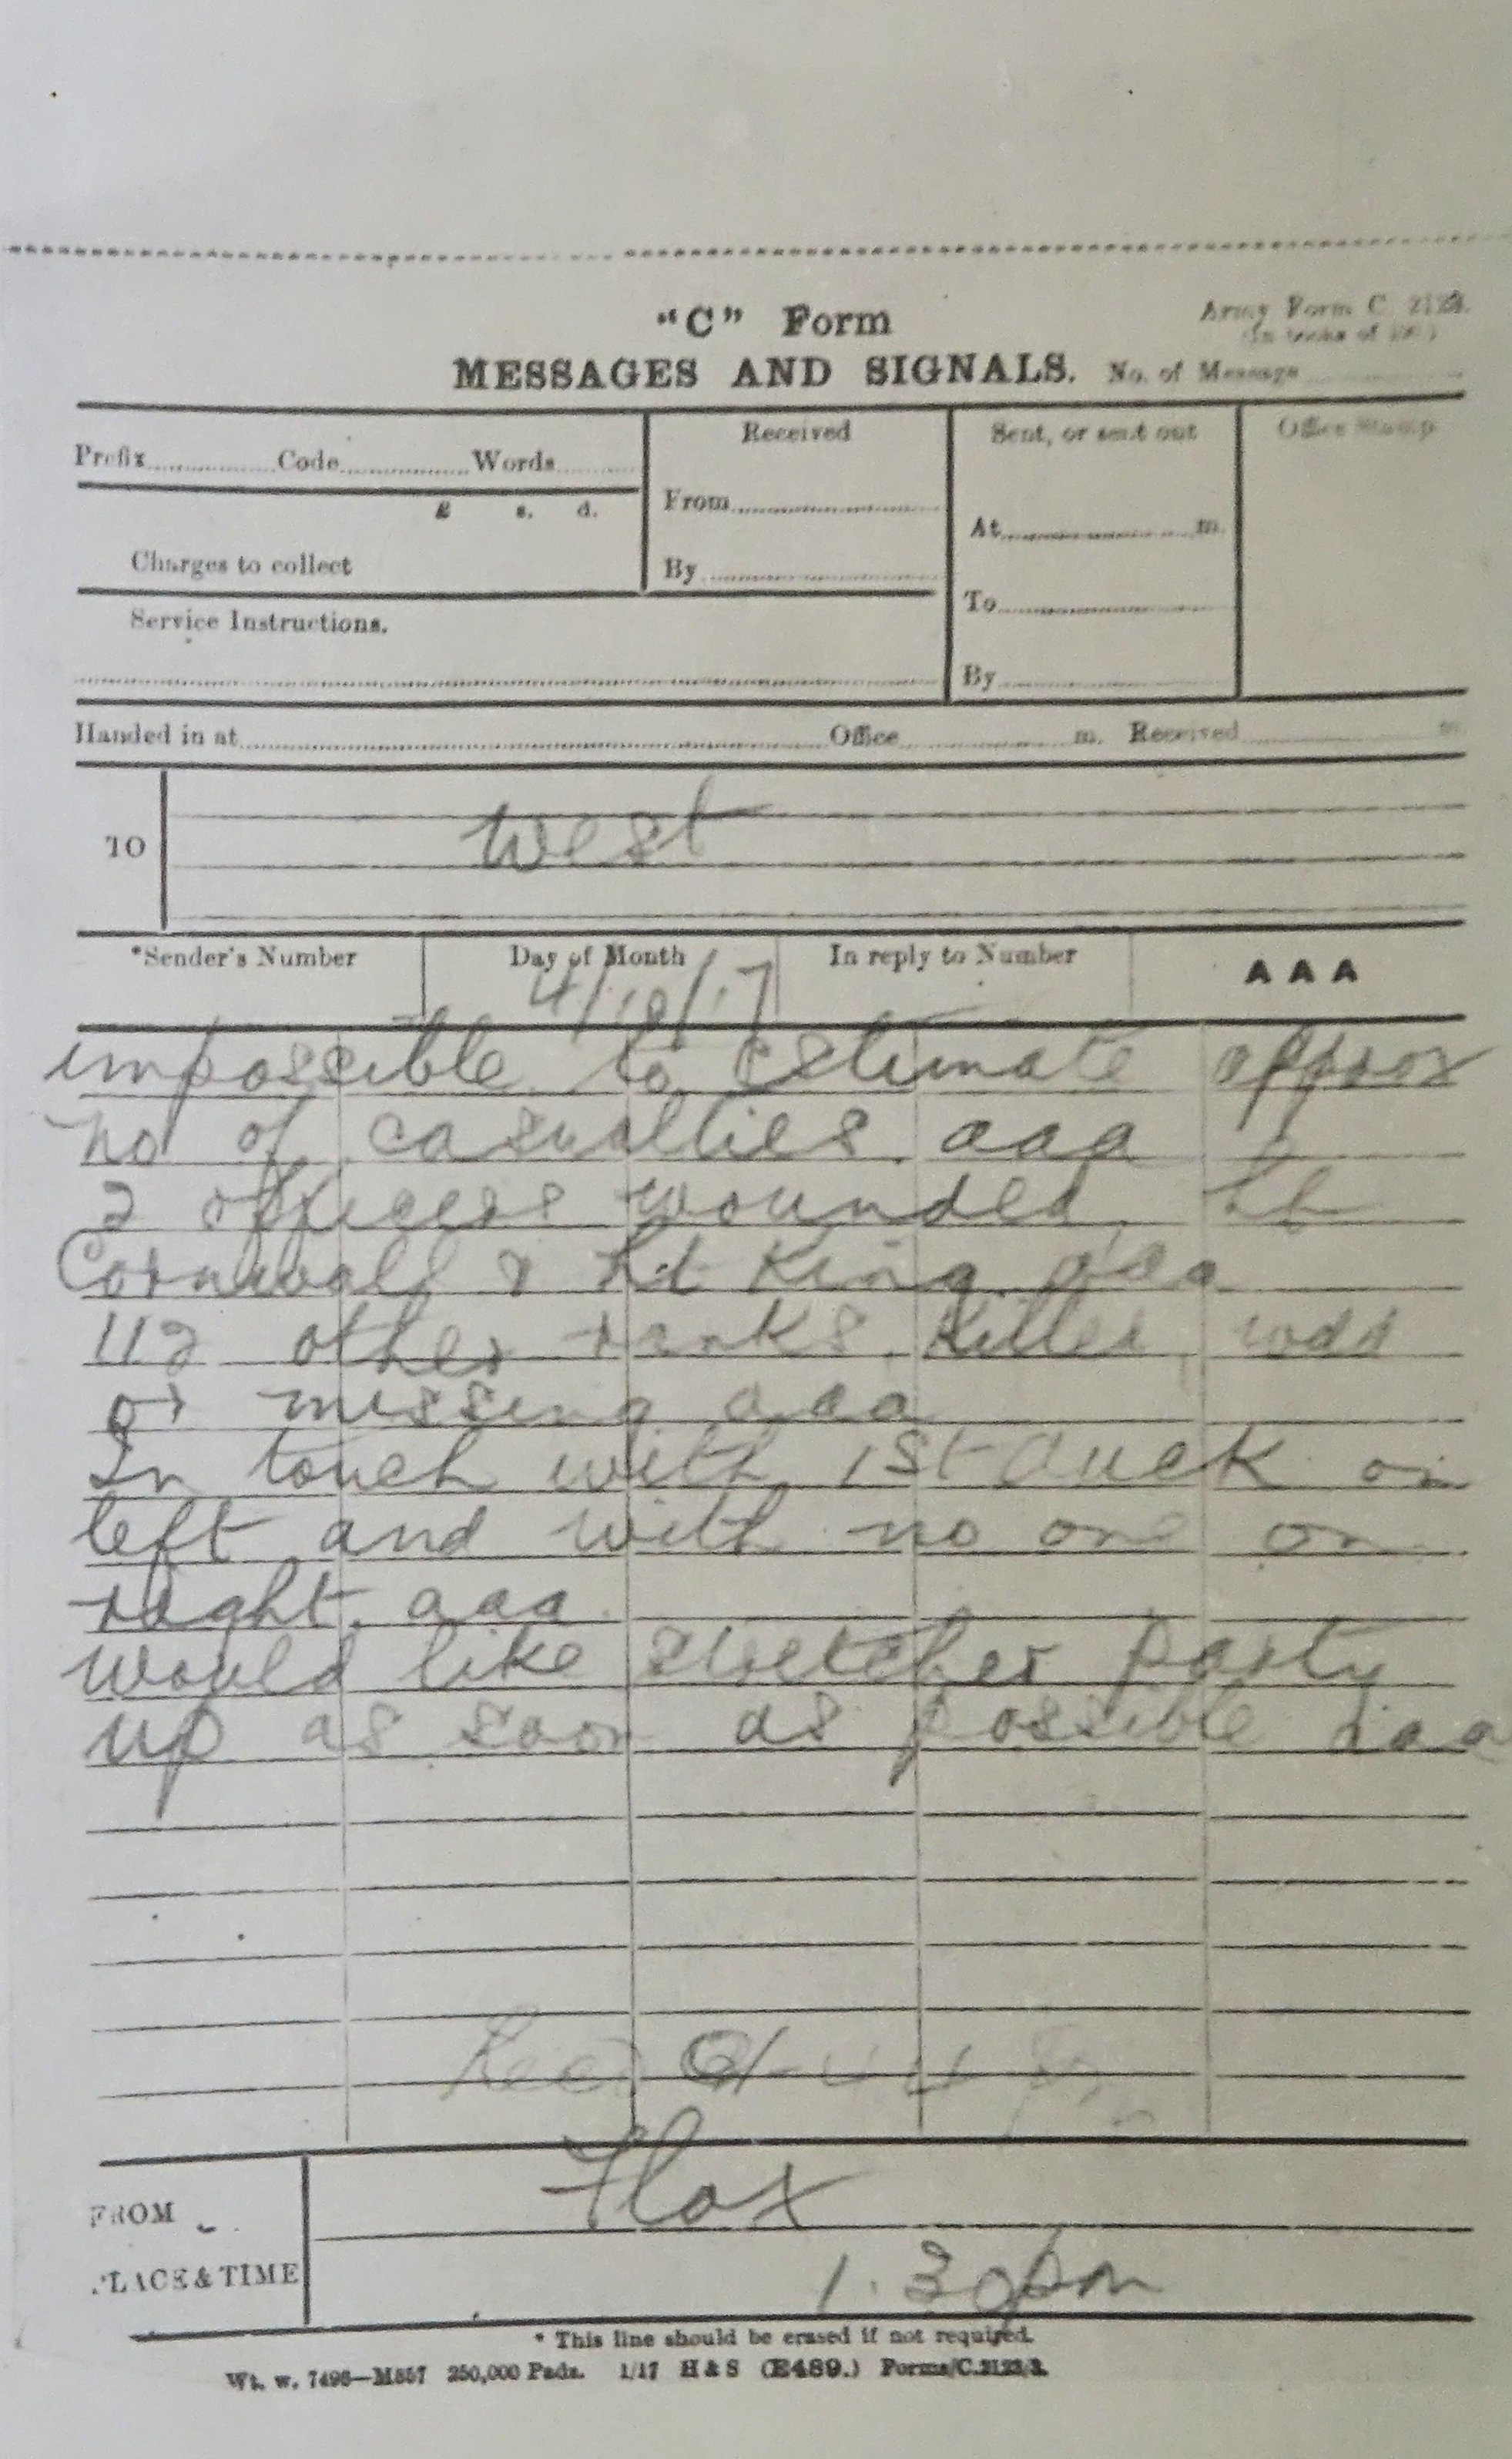 "C" Form
Army Form C. 2123.
MESSAGES AND SIGNALS. No. of Message
Prefix Code Words
Received
Sent, or sent out
Office Stamp
£ s. d.
From
At m.
Charges to collect
By
To
Service Instructions.
By
Handed in at Office m. Received m.
TO
West
*Sender's Number
Day of Month
In reply to Number
AAA
4/10/17
impossible to estimate approx
no of casualties. aaa
2 officers wounded, Lt
Cornwall & Lt King. aaa
112 other ranks, killed, wdd
or missing aaa
In touch with 1st duck on
left and with no one on
right. aaa
would like stretcher party
up as soon as possible aaa
FROM
Flax
PLACE & TIME
1.30pm
* This line should be erased if not required.
Wt. w. 7496—M857 250,000 Pads. 1/17 H & S (E489.) Forms/C.2123/3.